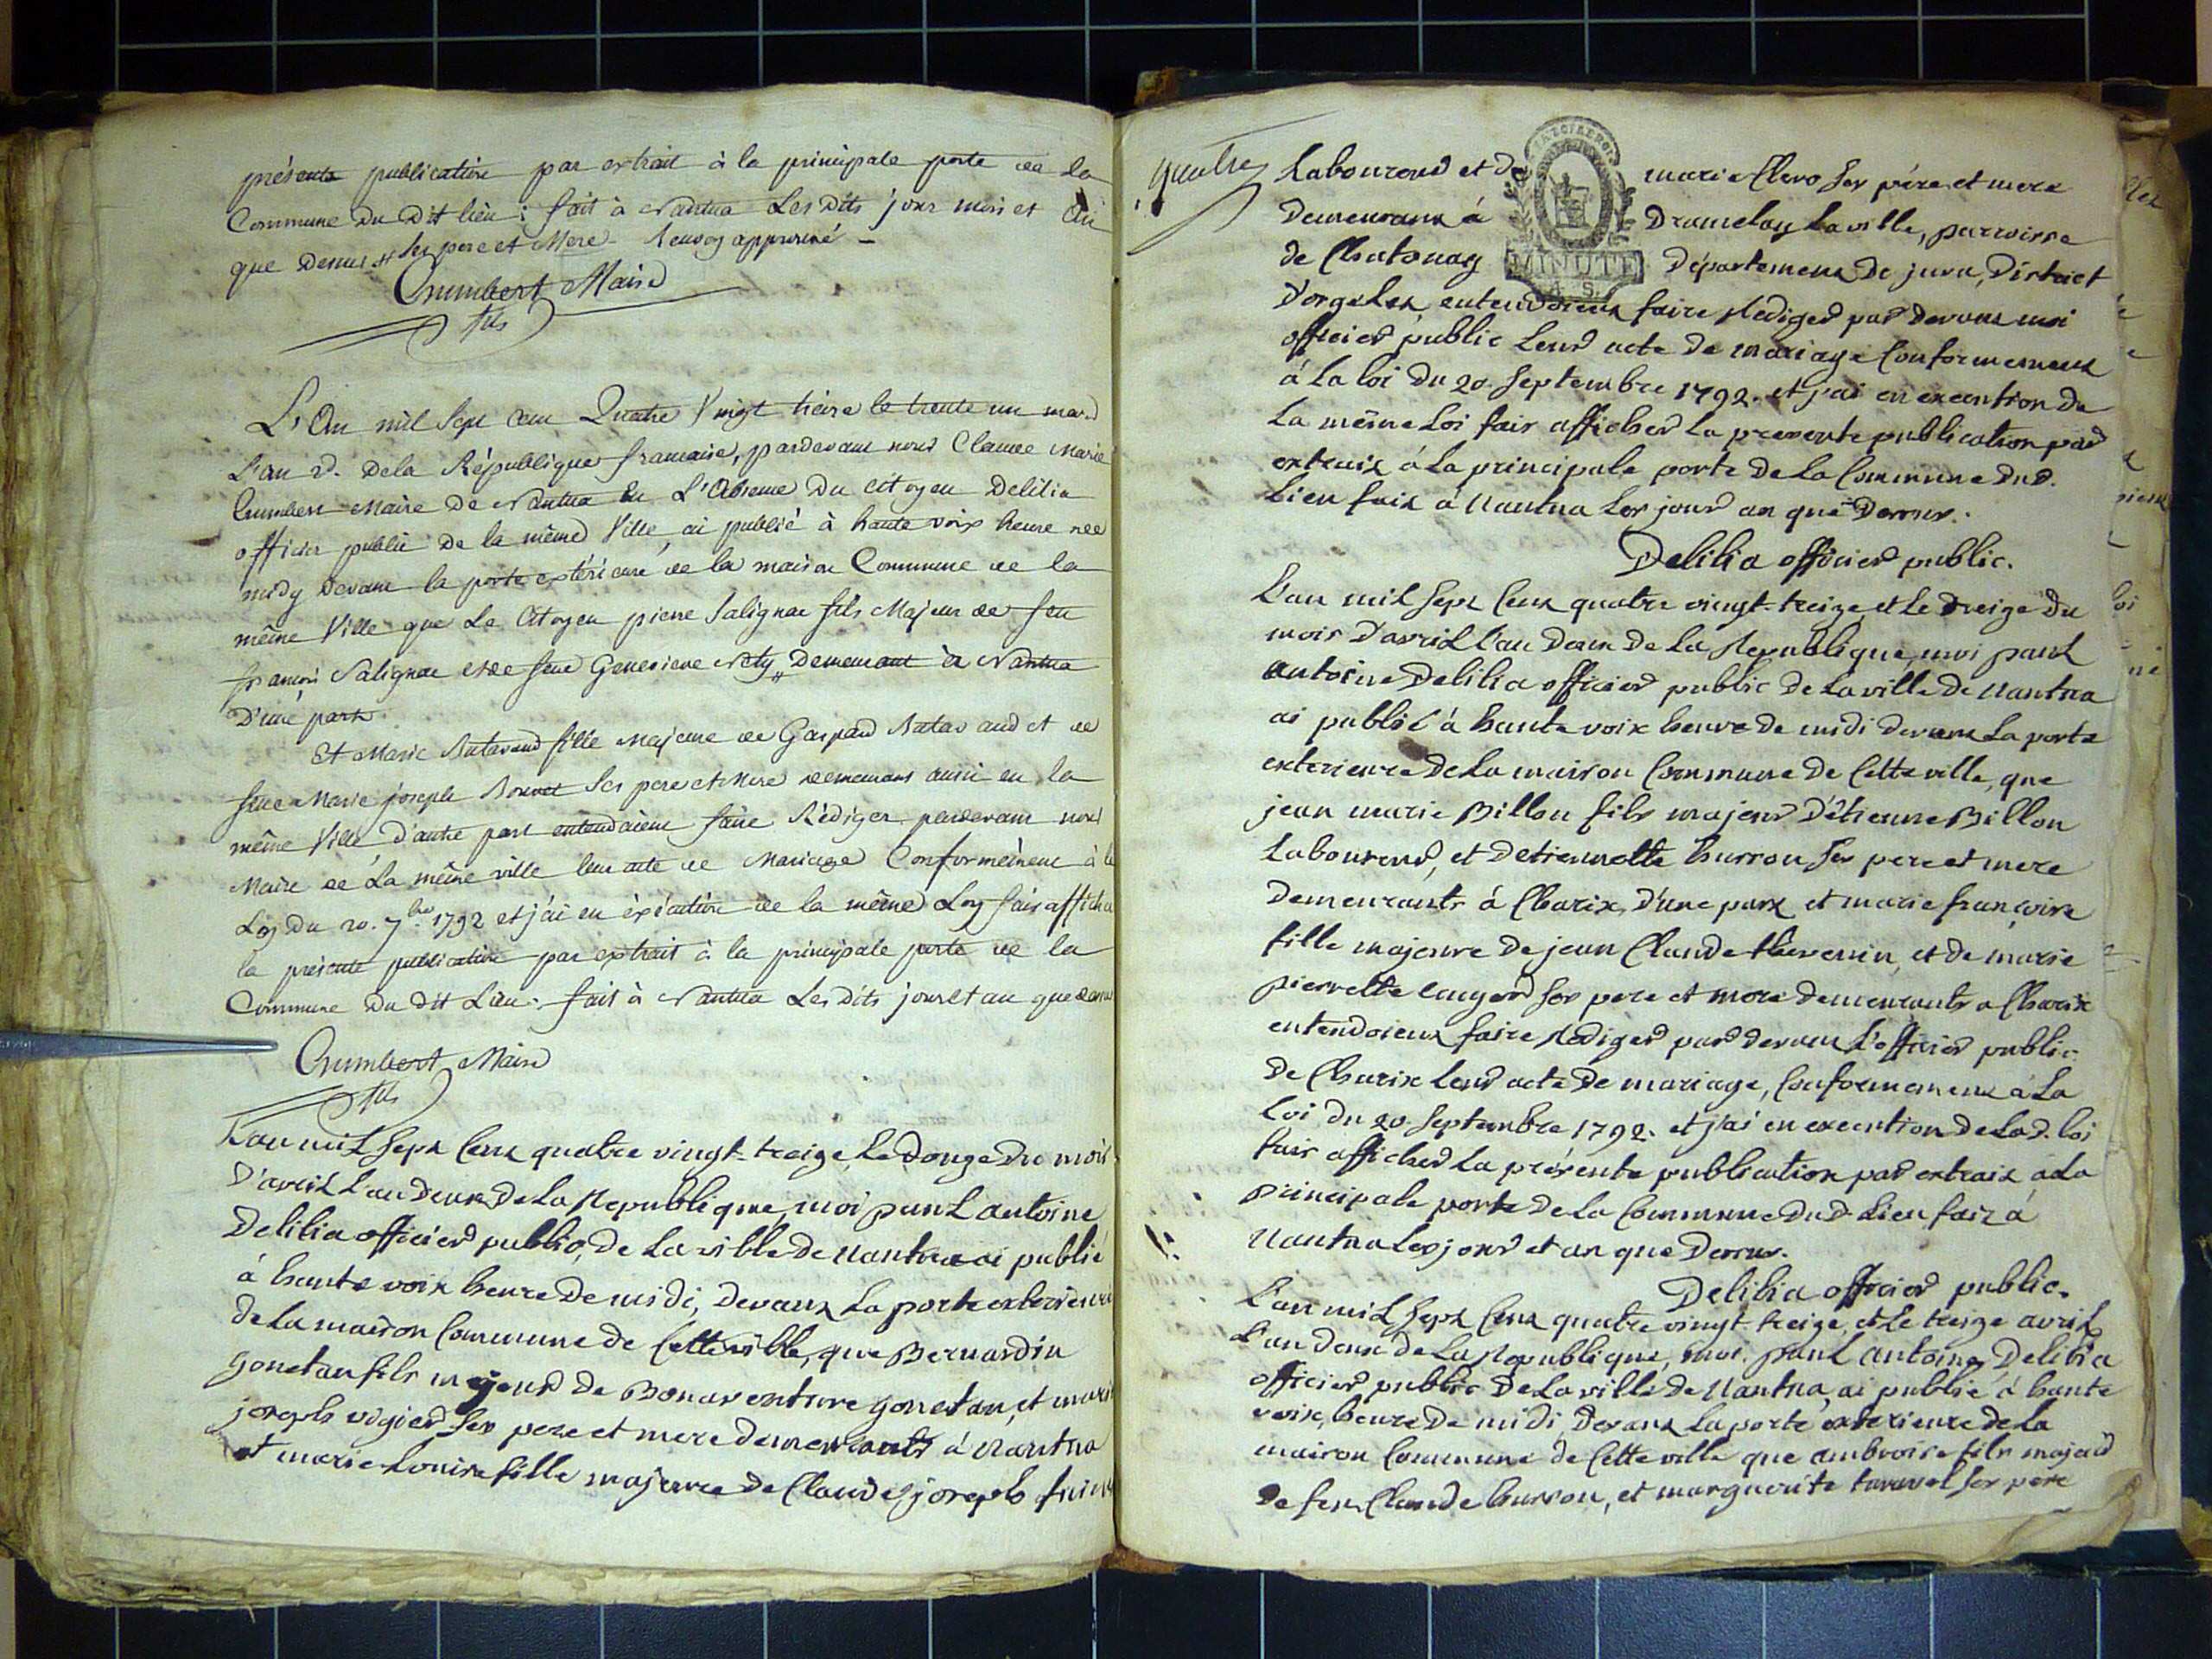 présente publication par extrait à la principale porte de la
Commune du Dit lieu : fait à Nantua Les Dits jour mois et an
que Dessus # ses pere et Mere - Renvoy approuvé -
Maire
fils
L'An mil Sept cent Quatre Vingt treize le trente un mars
L'an 2d. Dela République francaise, pardevant nous Claude Marie
Maire De Nantua En L'Absence Du citoyen Delilia
officier public De la même Ville, ai publié à haute voix heure de
midy devant la porte extérieure de la maison Commune de la
même Ville que Le Citoyen pierre Salignac fils Majeur de feu
françois Salignac et de feue Genevieve Nety # Demeurant à Nantua
D'une part.
Et Marie fille Majeure de Gaspard et de
feue Marie joseph ses pere et Mere demeurans aussi en la
même Ville d'autre part entendoient faire Rédiger pardevant nous
Maire de La même ville leur acte de Mariage Conformément à la
Loy Du 20. 7bre 1792 et j'ai en éxécution de la même Loy fais afficher
la présente publication par extrait à la principale porte de la
Commune du dit Lieu. fait à Nantua Les Dits jour et an que dessus
Maire
fils
L'an mil sept cent quatre vingt-treize, Le Douze Du mois
D'avril L'an Deux De La Republique, moi paul antoine
Delilia officier public, De La ville De Nantua ai publié
à haute voix heure De midi, Devant La porte exterieure
De La maison Commune de Cette ville, que Bernardin
gonetan fils majeur De Bonaventure gonetan, et marie
joseph vigier ses pere et mere demeurants à Nantua
et marie Louise fille majeure De Claude joseph
quatre
Laboureur et De marie Clero ses père et mere
Demeurant à Dramelay La ville, parroisse
de Chatonay Département De jura, District
D'orgelet, entendoient faire Rediger par Devant moi
officier public Leur acte De mariage Conformement
à La loi Du 20. Septembre 1792. et j'ai en execution De
La même Loi fait afficher La presente publication par
extrait à La principale porte De La Commune Dud.
Lieu fait à Nantua Les jour an que Dessus.
MINUTE
Delilia officier public.
L'an mil sept Cent quatre vingt-treize, et Le treize Du
mois D'avril L'an Deux De La Republique, moi paul
antoine Delilia officier public De La ville De Nantua
ai publié à haute voix heure De midi devant La porte
exterieure De La maison Commune De Cette ville, que
jean marie Billon fils majeur D'étienne Billon
Laboureur, et D'etiennette hurron ses pere et mere
Demeurants à Charix, D'une part et marie françoise
fille majeure De jean Claude thevenin, et de marie
pierrette ses pere et mere demeurants a Charix
entendoient faire Rediger par devant L'officier public
De Charix Leur acte De mariage, Conformement à La
Loi Du 20. Septembre 1792. et j'ai en execution De Lad. Loi
fait afficher La présente publication par extrait à La
principale porte De La Commune Dud. Lieu fait à
Nantua Les jour et an que Dessus.
Delilia officier public.
L'an mil sept Cent quatre vingt-treize, et Le treize avril
L'an Deux De La Republique, moi paul antoine Delilia
officier public De La ville De Nantua, ai publié à haute
voix, heure De midi, Devant La porte exterieure De La
maison Commune De Cette ville que ambroise fils majeur
De feu Claude hurron, et marguerite ses pere